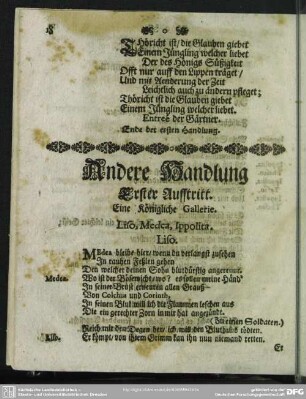 Thöricht ist/ die Glauben giebet
Einem Jüngling welcher liebet
Der des Hönigs Süßigkeit
Offt nur auff den Lippen träget/
Und mit Aenderung der Zeit
Leichtlich auch zu ändern pfleget;
Thöricht ist die Glauben giebet
Einem Jüngling welcher liebet.
Entreé der Gärtner.
Ende der ersten Handlung.
Andere Handlung
Erster Aufftritt.
Eine Königliche Gallerie.
Liso, Medea, Ippolita.
Liso.
Medea bleibe hier/ wenn du verlangst zusehen
In rauhen Fesseln gehen
Den welcher deinen Sohn blutdürstig angerennt.
Medea. Wo ist der Bösewicht/ wo?
In seiner Brust erneuten allen Grauß
Von Colchis und Corinth,
In seinen Blut will ich die Flammen leschen aus
Die ein gerechter Zorn in mir hat angezündt.
Soldaten.)
Reich mir den Degen her/ ich will den Bluthund tödten.
Liso. Er kan ihn nun niemand retten.
Er